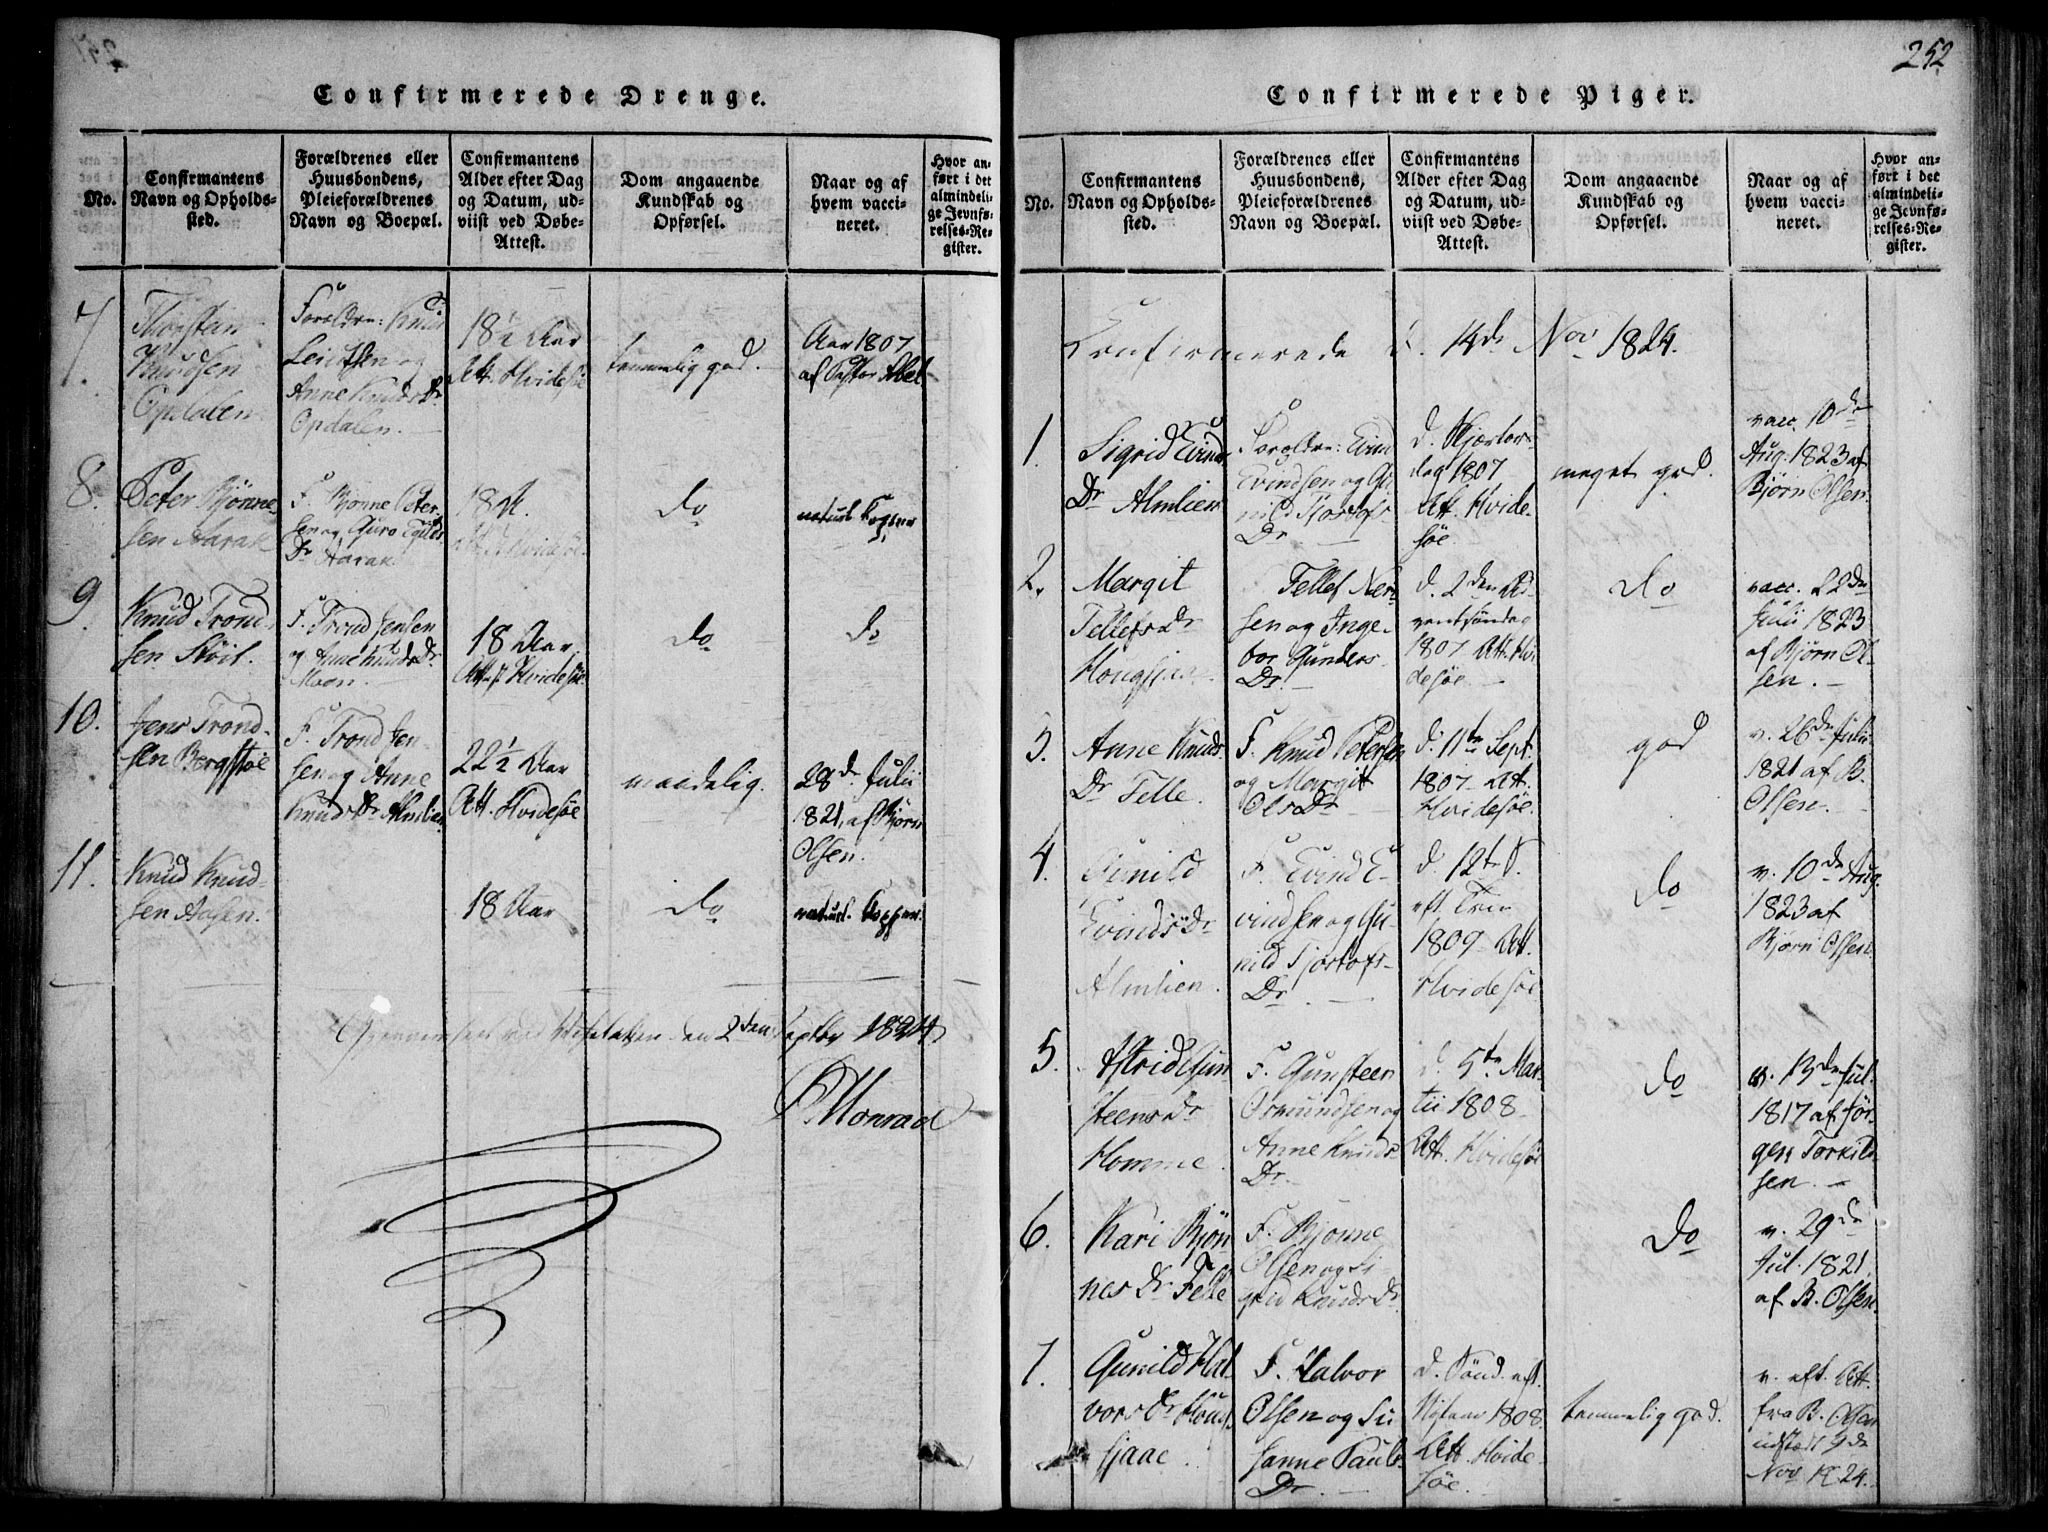 Confirmerede Drenge.
No.
Confirmantens
Navn og Opholds-
sted.
Forældrenes eller
Huusbondens,
Pleieforældrenes
Navn og Boepæl.
Confirmantens
Alder efter Dag
og Datum, ud-
viist ved Døbe-
Attest.
Dom angaaende
Kundskab og
Opførsel.
Naar og af
hvem vacci-
neret.
Hvor an-
ført i det
almindeli-
ge Jevnfø-
relses-Re-
gister.
7.
Thorstein
Knudsen
Opdalen
Foreldre: Knud
Leifsen og
Anne Knuds Dr
Opdalen.
18½ Aar
Att. Hvidesøe
temmelig god.
Aar 1807
af Pastor Abel
8.
Peter Bjønne-
sen Aarak
F. Bjønne Peter-
sen og Guro
Dr Aarak.
18 A.
Att. Hvidesøe
do
naturl. Kopper
9.
Knud Trond-
sen Støil.
F. Trond Jensen
og Anne Knuds Dr
Moen.
18 Aar
Att. Hvidesøe
do
do
10.
Jens Trond-
sen Bergstøe
F. Trond Jen-
sen og Anne
Knuds Dr Almlien
22½ Aar
Att. Hvidesøe
maadelig.
28de Julii
1821, af Bjørn
Olsen.
11.
Knud Knud-
sen Aasen.
18 Aar
do
naturl. Kopper.
den 2den Septbr 1824
Monrad
252
Confirmerede Piger.
No.
Confirmantens
Navn og Opholds-
sted.
Forældrenes eller
Huusbondens,
Pleieforældrenes
Navn og Boepæl.
Confirmantens
Alder efter Dag
og Datum, ud-
viist ved Døbe-
Attest.
Dom angaaende
Kundskab og
Opførsel.
Naar og af
hvem vacci-
neret.
Hvor an-
ført i det
almindeli-
ge Jevnfø-
relses-Re-
gister.
Confirmerede d. 14de Nov 1824.
1.
Sigrid Evinds
Dr Almlien
Foreldre: Evind
Evindsen og Gu-
nild Tjostofs
Dr
d. Skjærtors-
dag 1807
Att. Hvide-
søe
meget god.
vacc. 10de
Aug. 1823 af
Bjørn Olsen.
2.
Margit
Tellefs Dr
Hougsjaa
Tellef
sen og Inge-
bor Gunders
Dr.
d. 2den Ad-
ventsøndag
1807 Att. Hvi-
desøe
do
vacc. 22de
Julii 1823
af Bjørn Ol-
sen.
3.
Anne Knuds
Dr Felle.
F. Knud Petersen
og Margit
Ols Dr
d. 11te Sept.
1807. Att.
Hvidesøe.
god
v. 26de Julii
1821 af B.
Olsen.
4.
Gunild
Evinds Dr
Almlien.
F. Evind E-
vindsen og Gu-
nild Tjostofs
Dr.
d. 12te S.
eft. Trin
1809. Att.
Hvidesøe
do
v. 10de Aug.
1823 af
Bjørn Olsen
5.
Astrid Gun-
steens Dr
Homme.
F. Gunsteen
Osmundsen og
Anne Knuds-
Dr.
d. 5te Mar-
tii 1808
Att. Hvidesøe
do
v. 13de Jul.
1817 af Jør-
gen Torkild-
sen.
6.
Kari Bjøn-
nes Dr Felle
F. Bjønne
Olsen og Si-
grid Knuds Dr.
do
v. 29de
Jul. 1821.
af B. Olsen
7.
Gunild Hal-
vors Dr Houg-
sjaae.
F. Halvor
Olsen og Su-
sanne Pauls
Dr.
d. Sønd. eft.
Nytaar 1808
Att. Hvide-
søe.
temmelig god.
v. eft. Att.
fra B. Olsen
udstædt 9de
Nov 1824.